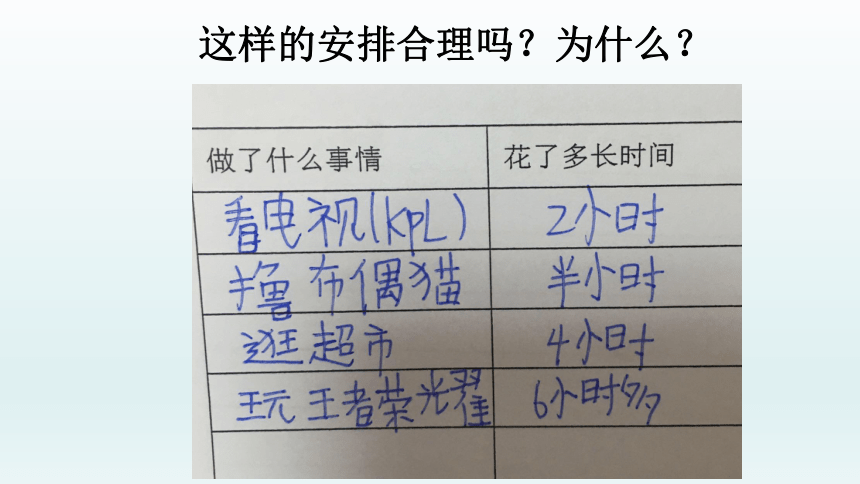 这样的安排合理吗？为什么？
做了什么事情 花了多长时间
看电视(KPL) 2小时
撸布偶猫 半小时
逛超市 4小时
玩王者荣光耀 6小时多